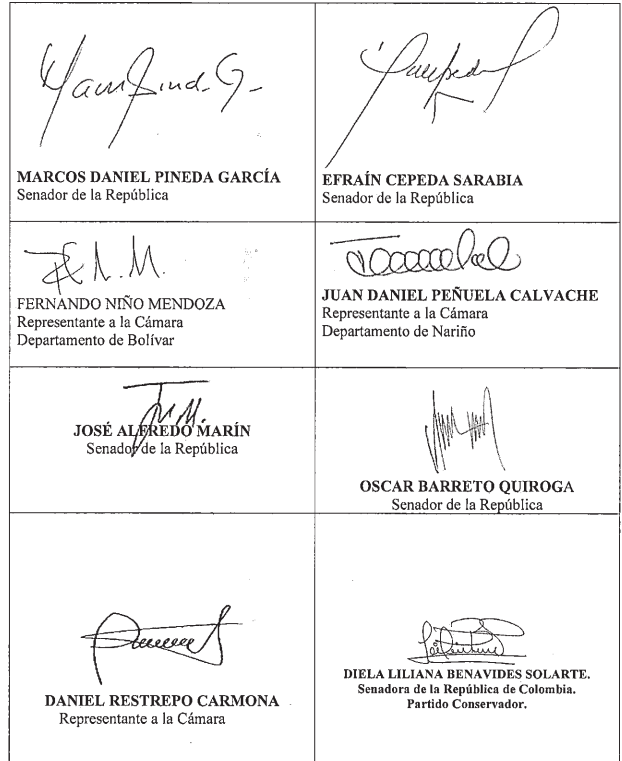 MARCOS DANIEL PINEDA GARCÍA
Senador de la República
EFRAÍN CEPEDA SARABIA
Senador de la República
FERNANDO NIÑO MENDOZA
Representante a la Cámara
Departamento de Bolívar
JUAN DANIEL PEÑUELA CALVACHE
Representante a la Cámara
Departamento de Nariño
JOSÉ ALFREDO MARÍN
Senador de la República
OSCAR BARRETO QUIROGA
Senador de la República
DANIEL RESTREPO CARMONA
Representante a la Cámara
DIELA LILIANA BENAVIDES SOLARTE.
Senadora de la República de Colombia.
Partido Conservador.